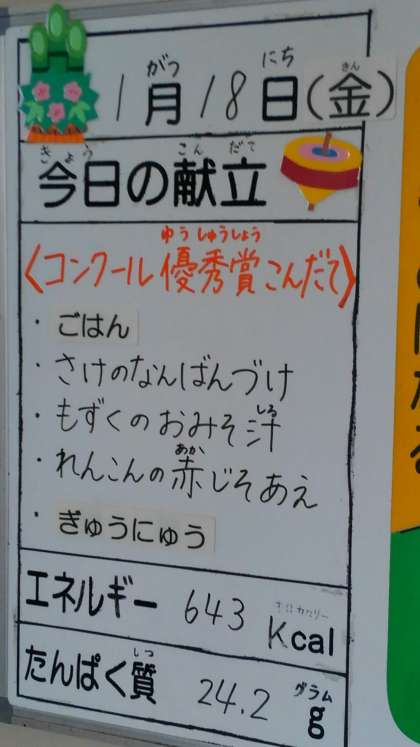 がつ にち きん
1月18日(金)
きょう こん だて
今日の献立
ゆうしゅうしょう
〈コンクール優秀賞こんだて〉
・ごはん
・さけのなんばんづけ
しる
・もずくのおみそ汁
あか
・れんこんの赤じそあえ
・ぎゅうにゅう
キロカロリー
エネルギー 643 Kcal
しつ グラム
たんぱく質 24.2 g